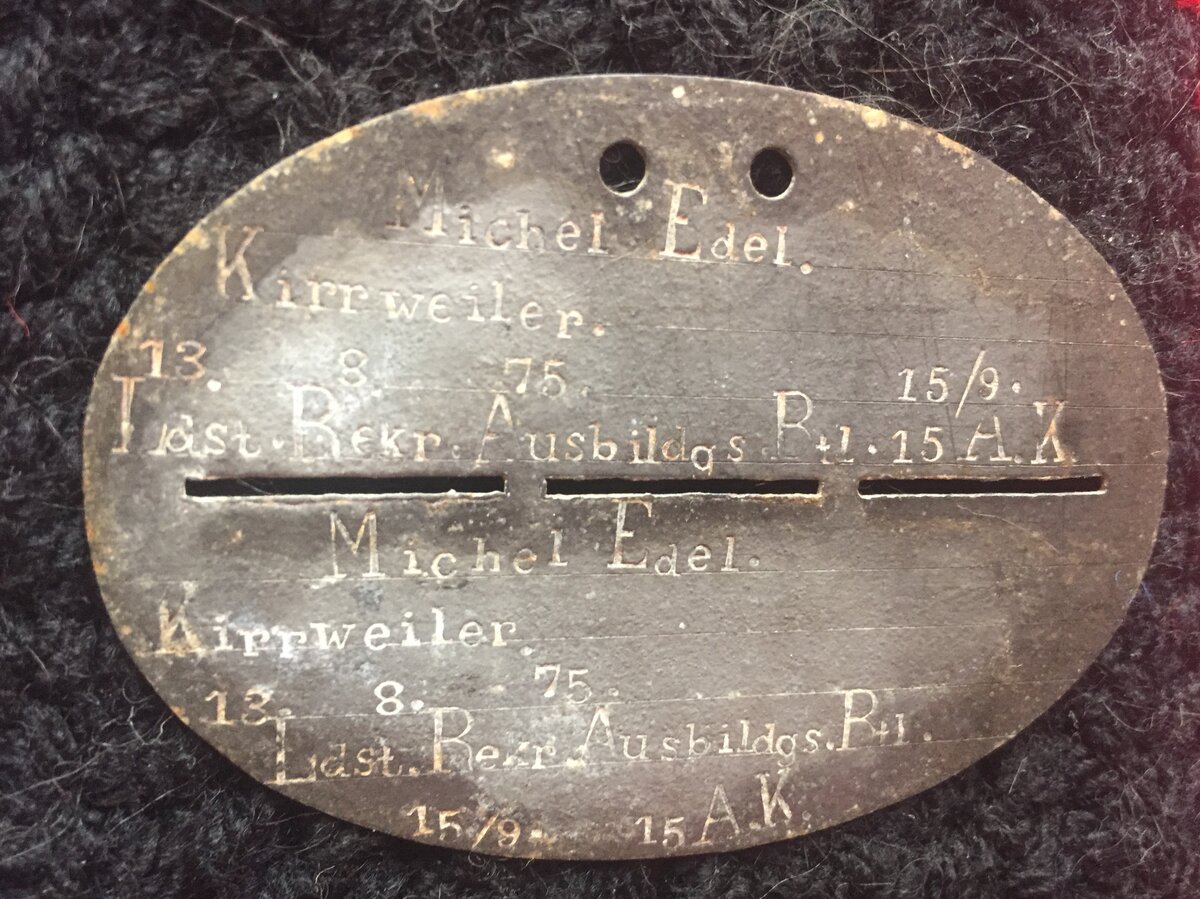 Michel Edel.
Kirrweiler.
13. 8. 75. 15/9.
Ldst. Rekr. Ausbildgs. Btl. 15 A.K.
Michel Edel.
Kirrweiler.
13. 8. 75.
Ldst. Rekr. Ausbildgs. Btl.
15/9. 15 A.K.